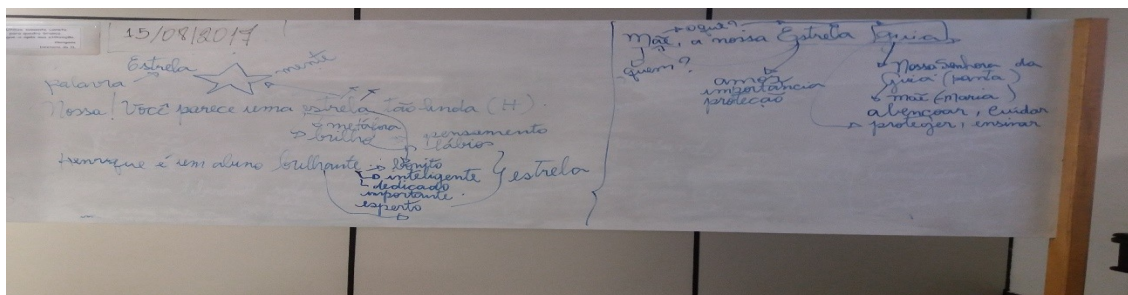 15/08/2017
Estrela
mente
palavra
Nossa! Você parece uma estrela tão linda (H).
metáfora
brilho
pensamento
sábios
Henrique é um aluno brilhante
bonito
inteligente
dedicado
importante
esperto
estrela
o quê?
Mãe, a nossa Estrela Guia
quem?
amor
importância
proteção
Nossa Senhora da
Guia (santa)
mãe (Maria)
abençoar, cuidar
proteger, ensinar